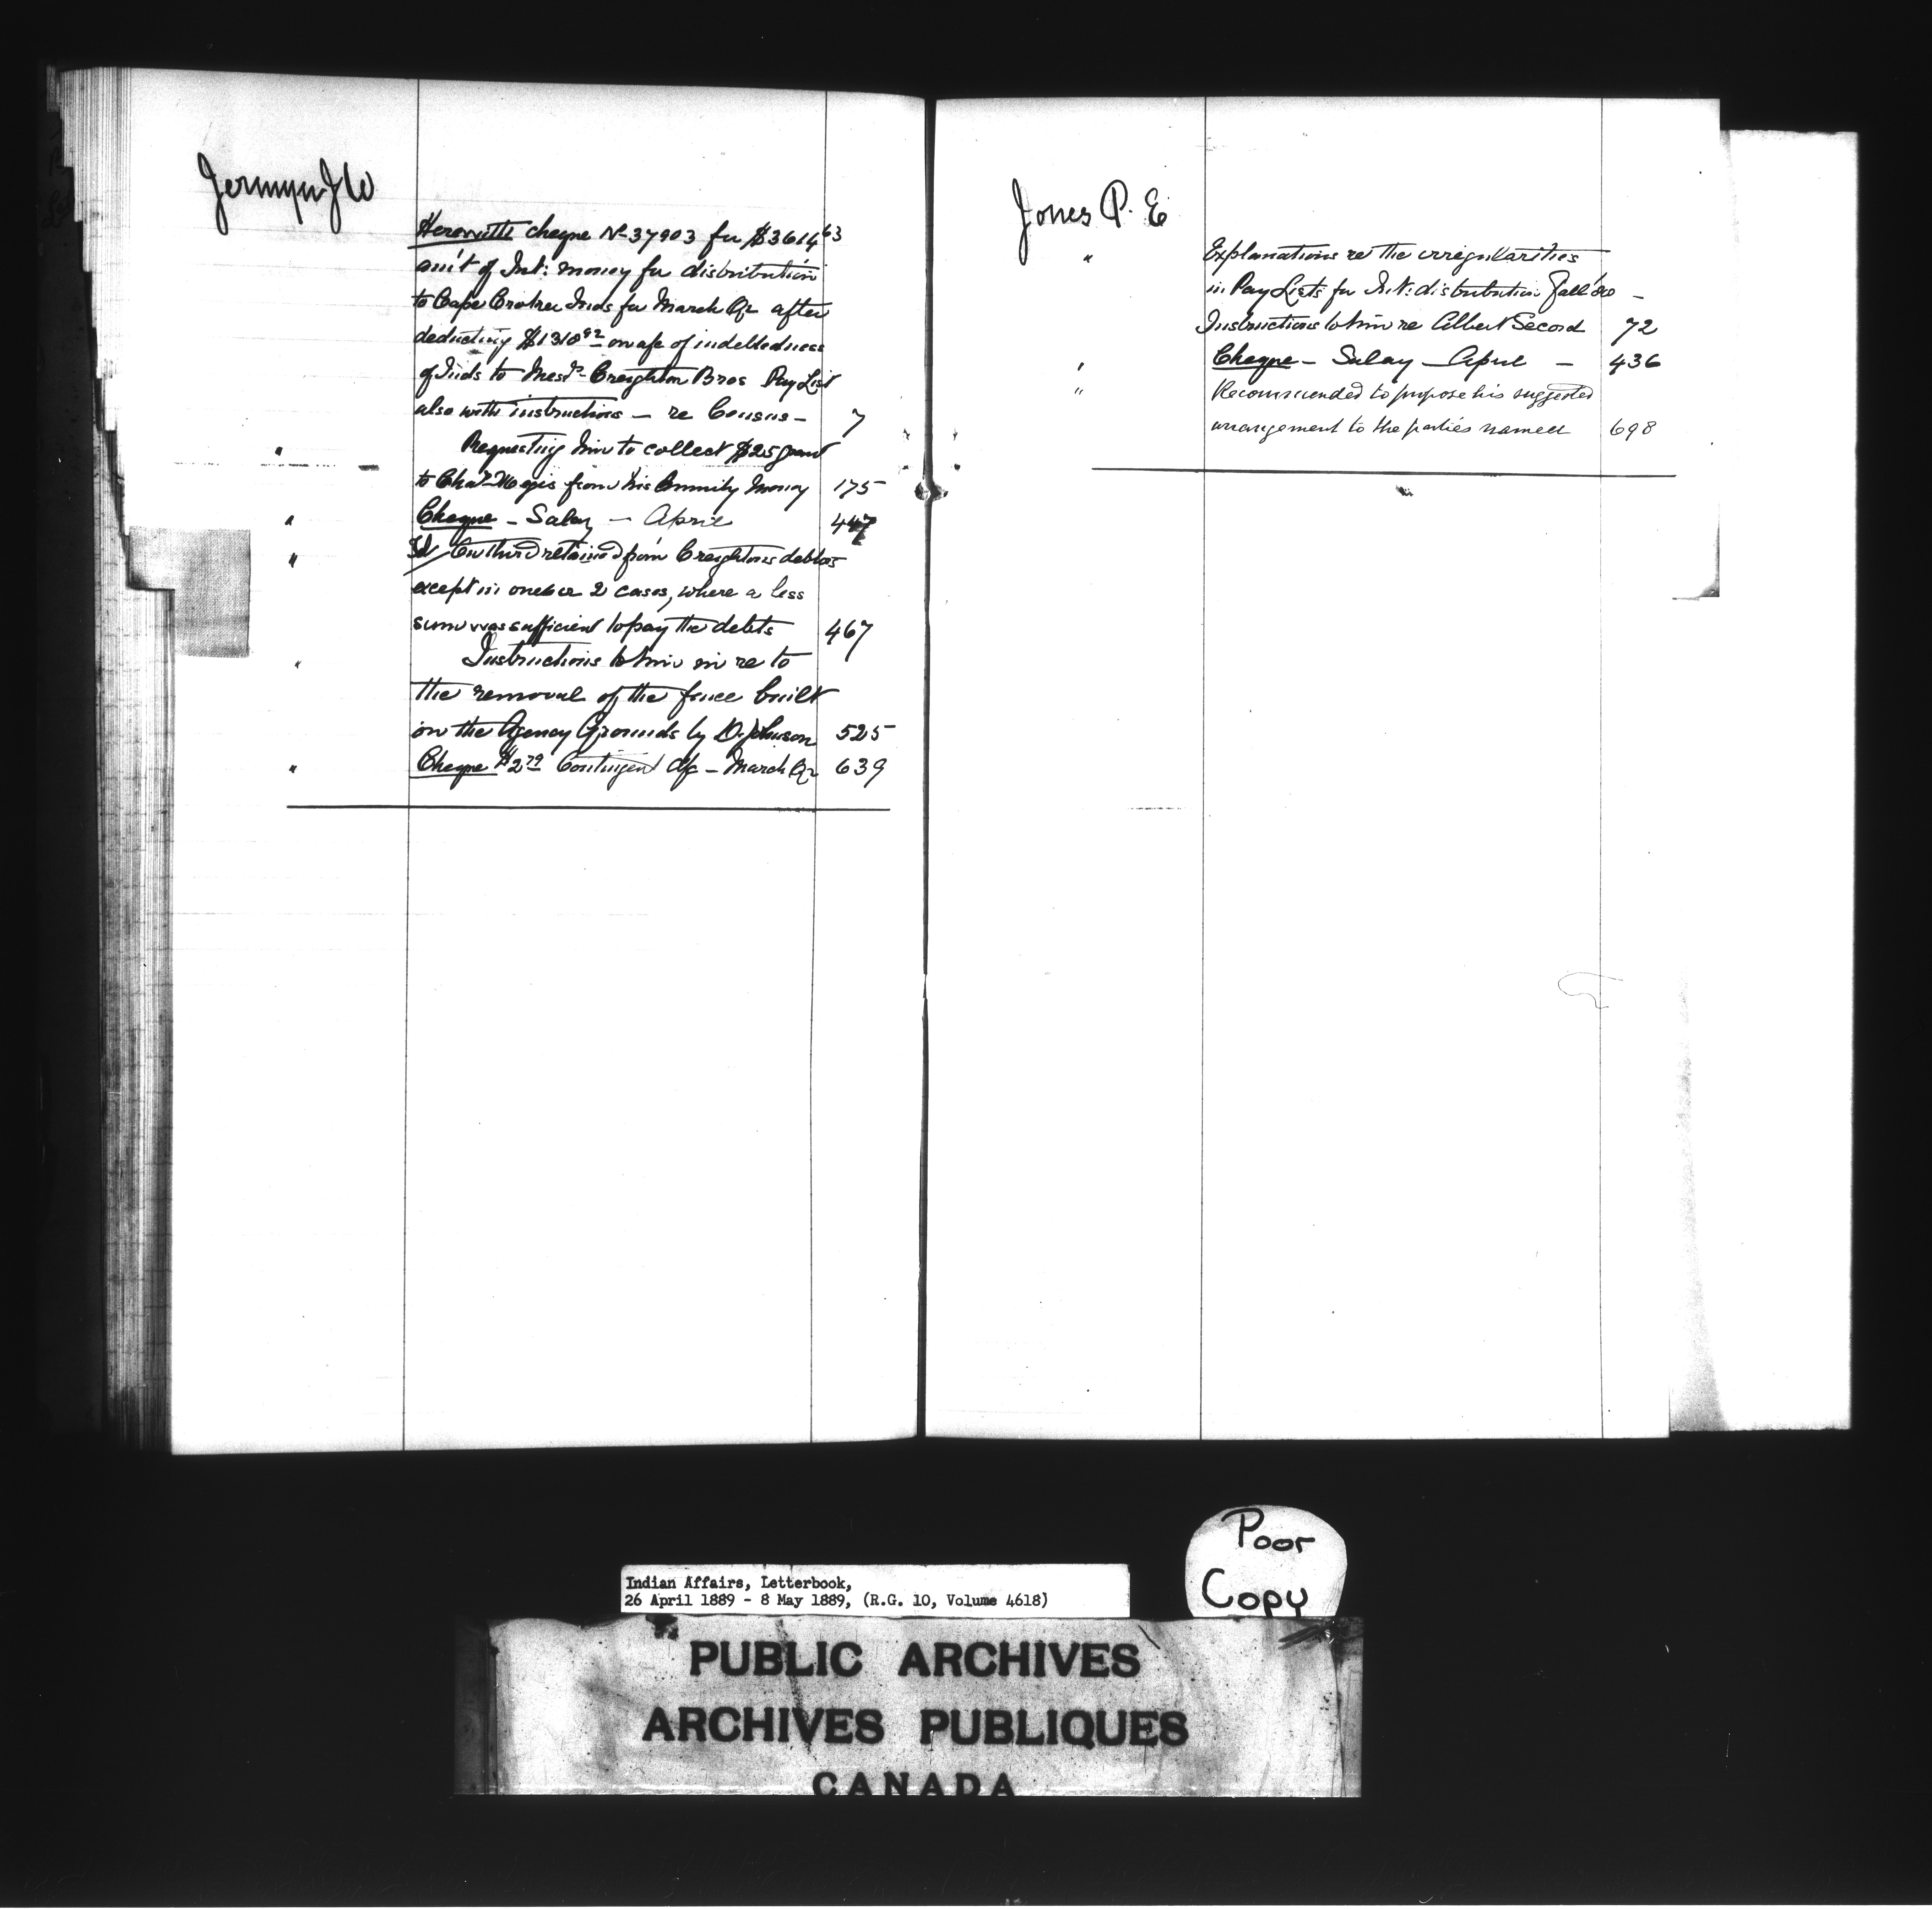 Jermyn J W
Herewith cheque No 37903 for $3614 63
am't of Int: money for distribution
to Cape Croker Inds for March Qr after
deducting $1310 92 on a/c of indebtedness
of Inds to Messrs Creighton Bros Pay List
also with instructions — re Census — 7
" Requesting him to collect $25
to Chas from his Annuity Money 175
" Cheque — Salary — April 447
" retained from Creightons debtors
except in one or 2 cases, where a less
sum was sufficient to pay the debts 467
" Instructions to him in re to
the removal of the fence built
on the Agency Grounds by D. Johnson 525
" Cheque $2 79 Contingent a/c — March Qr 639
Jones P. E
" Explanations re the irregularities
in Pay Lists for Int: distribution Fall —
Instructions to him re Albert Secord 72
" Cheque — Salary — April — 436
" Recommended to propose his suggested
arrangement to the parties named 698
Poor
Copy
Indian Affairs, Letterbook,
26 April 1889 - 8 May 1889, (R.G. 10, Volume 4618)
PUBLIC ARCHIVES
ARCHIVES PUBLIQUES
CANADA